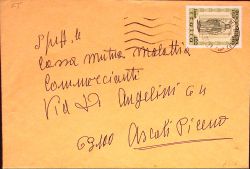 Spett.le
Cassa Mutua Malattia
Commercianti
Via D Angelini 64
63100 Ascoli Piceno